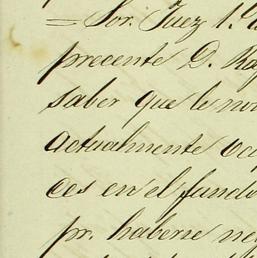 = Sor. Juez 1.º
precente D. Ra
saber que le no
actualmente oc
ces en el fundo
pr. haberse ne